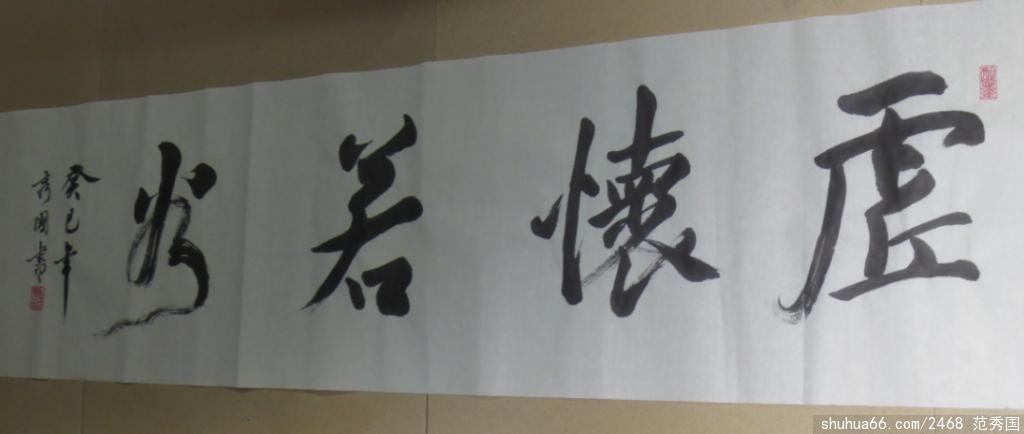 虚懷若谷
癸巳年
秀國書
shuhua66.com/2468 范秀国